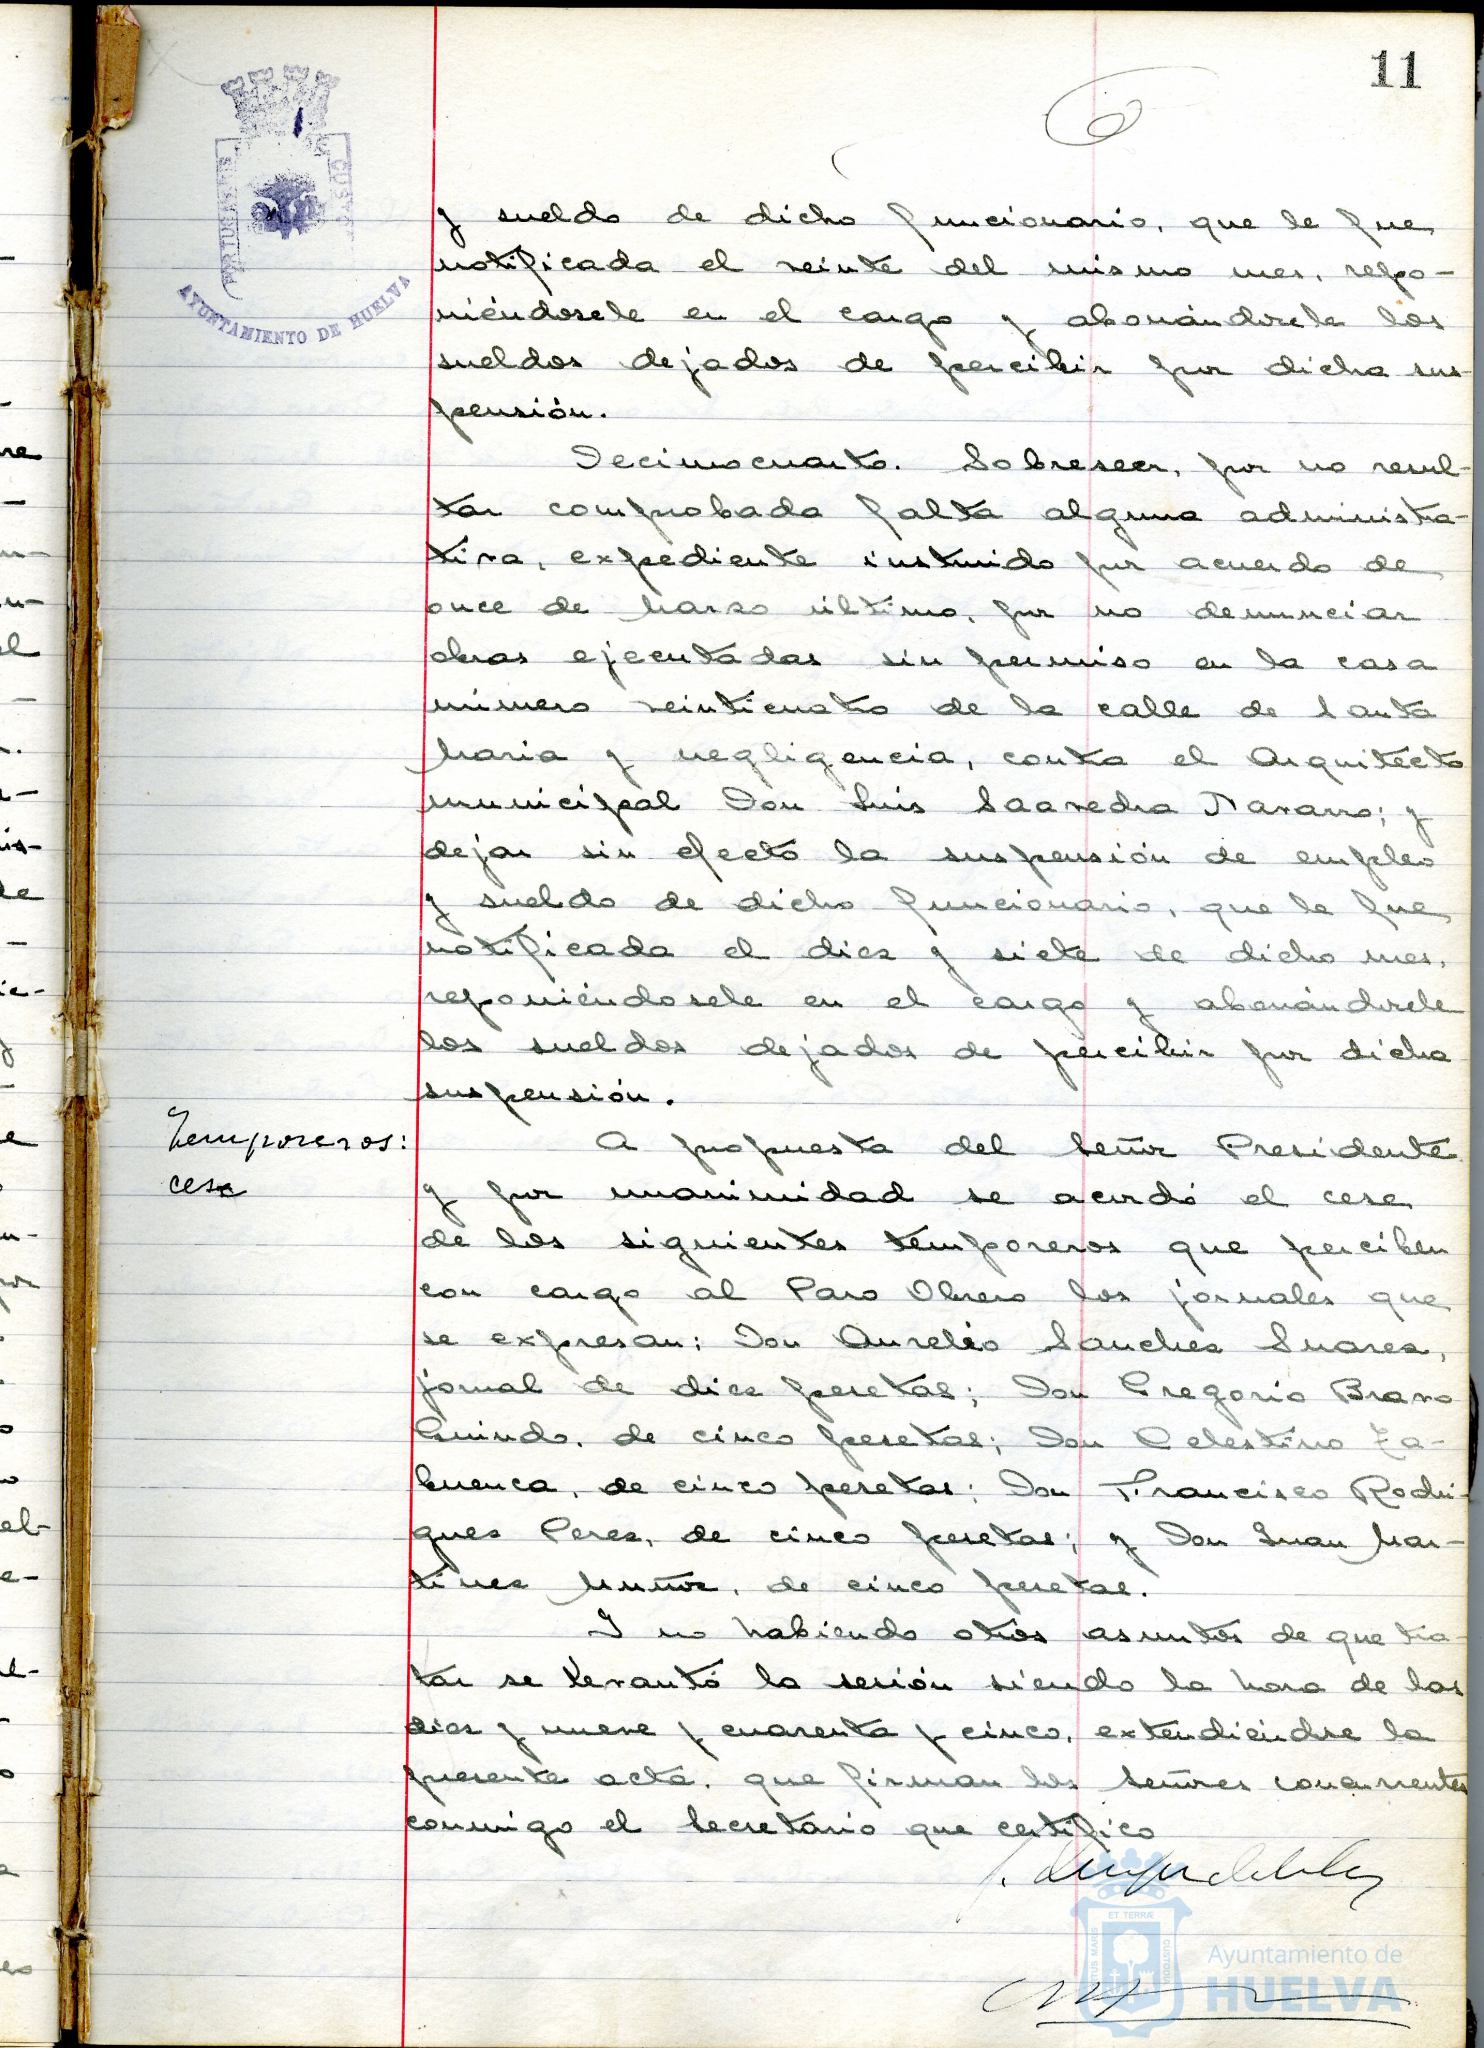 11
PORTUS MARIS
CUSTODIA
AYUNTAMIENTO DE HUELVA
y sueldo de dicho funcionario, que le fue
notificada el veinte del mismo mes, repo-
niéndosele en el cargo y abonándosele los
sueldos dejados de percibir por dicha sus-
pensión.
Decimocuarto. Sobreseer, por no resul-
tar comprobada falta alguna administra-
tiva, expediente instruido por acuerdo de
once de Marzo último, por no denunciar
obras ejecutadas sin permiso en la casa
número veinticuatro de la calle de Santa
Maria y negligencia, contra el Arquitecto
municipal Don Luis Saavedra Navarro; y
dejar sin efecto la suspensión de empleo
y sueldo de dicho funcionario, que le fue
notificada el diez y siete de dicho mes,
reponiéndosele en el cargo y abonándosele
los sueldos dejados de percibir por dicha
suspensión.
Temporeros:
cese
A propuesta del Señor Presidente
y por unanimidad se acordó el cese
de los siguientes temporeros que perciben
con cargo al Paro Obrero los jornales que
se expresan: Don Aurelio Sanchez Suarez,
jornal de diez pesetas; Don Gregorio Bravo
Guindo, de cinco pesetas; Don Celestino Za-
buenca, de cinco pesetas; Don Francisco Rodri-
guez Perez, de cinco pesetas; y Don Juan Mar-
tinez Muñoz, de cinco pesetas.
Y no habiendo otros asuntos de que tra-
tar se levantó la sesión siendo la hora de las
diez y nueve y cuarenta y cinco, extendiéndose la
presente acta, que firman los Señores concurrentes
conmigo el Secretario que certifico
ET TERRÆ
CUSTODIA
Ayuntamiento de
HUELVA